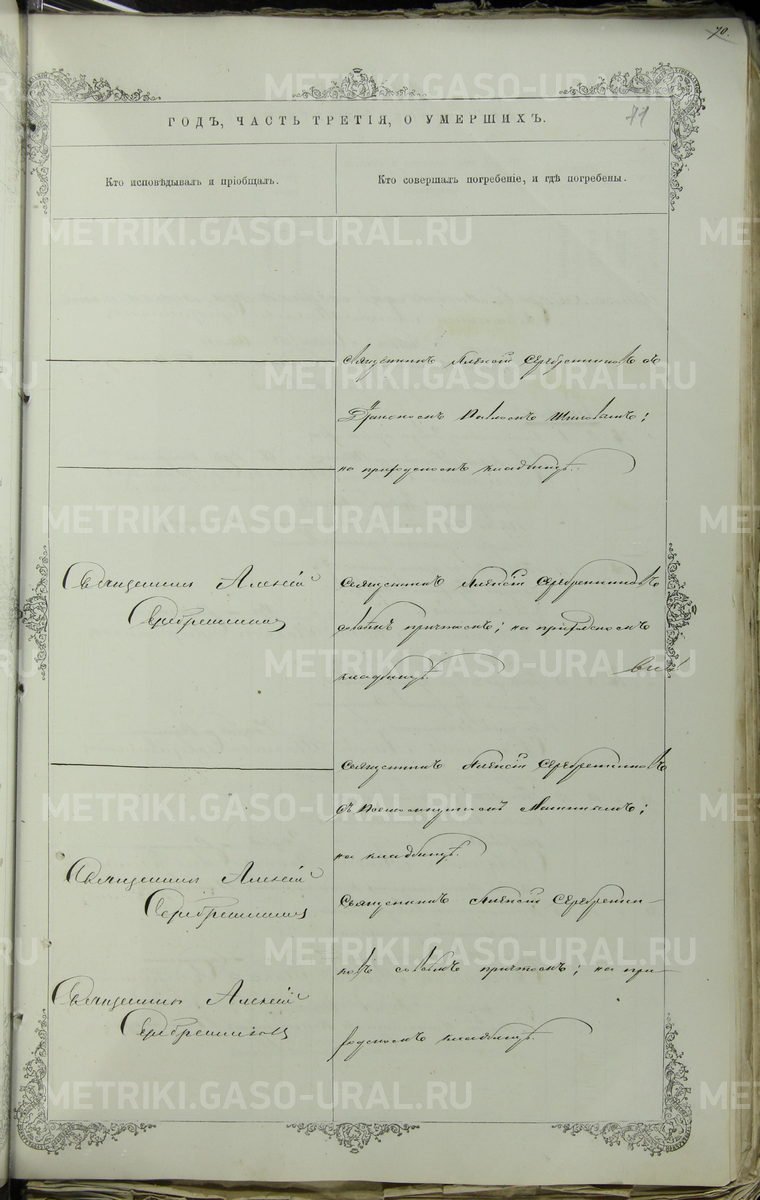 70.
71
ГОДЪ, ЧАСТЬ ТРЕТІЯ, О УМЕРШИХЪ.
Кто исповѣдывалъ и пріобщалъ.
Кто совершалъ погребеніе, и гдѣ погребены.
Священникъ Алексій Серебренниковъ съ
Павломъ
на приходскомъ кладбищѣ.
Священникъ Алексій
Серебренниковъ
Священникъ Алексій Серебренниковъ
съ причтомъ; на приходскомъ
кладбищѣ.
Священникъ Алексій Серебренниковъ
съ
на кладбищѣ.
Священникъ Алексій
Серебренниковъ
Священникъ Алексій Серебренни-
ковъ причтомъ; на при-
ходскомъ кладбищѣ.
Священникъ Алексій
Серебренниковъ
METRIKI.GASO-URAL.RU